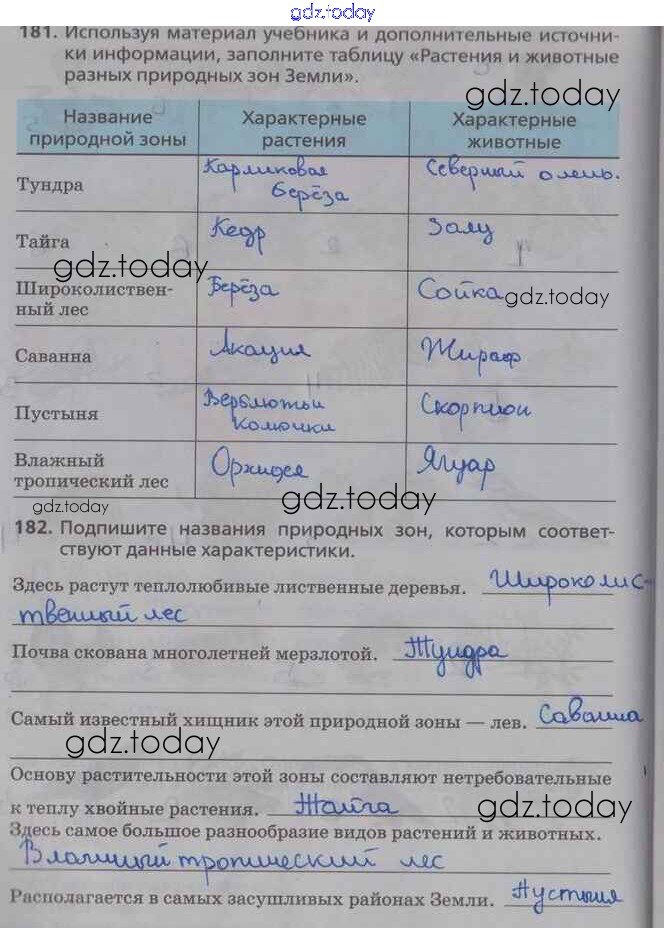 gdz.today
181. Используя материал учебника и дополнительные источни-
ки информации, заполните таблицу «Растения и животные
разных природных зон Земли».
gdz.today
Название природной зоны
Характерные растения
Характерные животные
Тундра
Карликовая берёза
Северный олень.
Тайга
Кедр
Заяц
gdz.today
Широколиствен-
ный лес
Берёза
Сойка
gdz.today
Саванна
Акация
Жираф
Пустыня
Верблютьи колючки
Скорпион
Влажный
тропический лес
Орхидея
Ягуар
gdz.today
gdz.today
182. Подпишите названия природных зон, которым соответ-
ствуют данные характеристики.
Здесь растут теплолюбивые лиственные деревья. Широколис-
твенный лес
Почва скована многолетней мерзлотой. Тундра
Самый известный хищник этой природной зоны — лев. Саванна
gdz.today
Основу растительности этой зоны составляют нетребовательные
к теплу хвойные растения. Тайга
gdz.today
Здесь самое большое разнообразие видов растений и животных.
Влажный тропический лес
Располагается в самых засушливых районах Земли. Пустыня